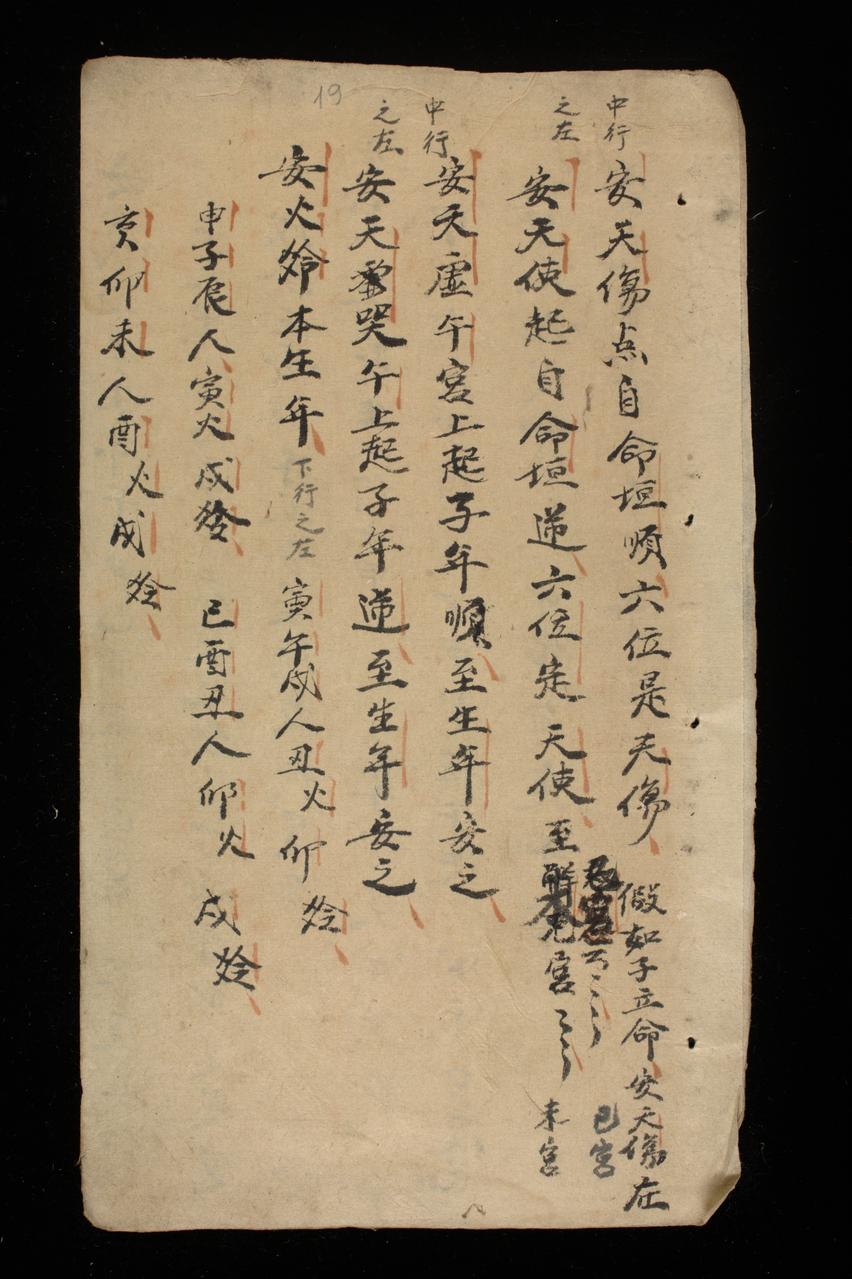 中行
安天傷点自命垣順六位是天傷
假如子立命安天傷在
巳宮
之左
安天使起自命垣逆六位定天使至
宮
未宮
中行
安天虛午宮上起子年順至生年安之
之左
安天哭午上起子年逆至生年安之
19
安火鈴本生年 下行之左 寅午戍人丑火 卯鈴
申子辰人寅火戍鈴 巳酉丑人卯火 戍鈴
亥卯未人酉火戍鈴